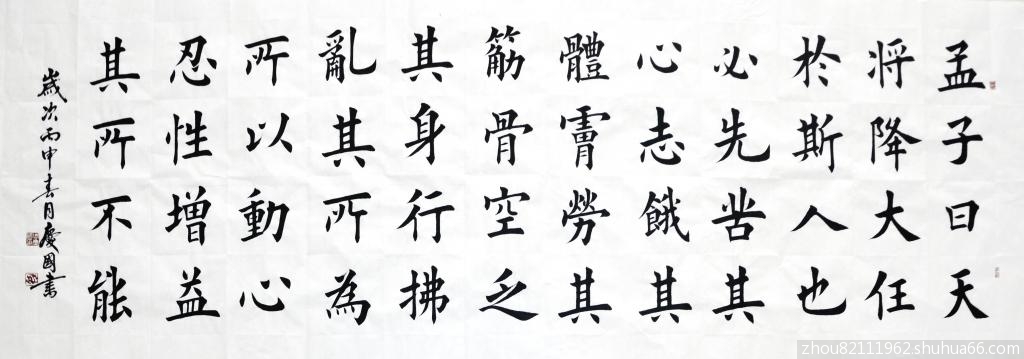 孟子曰天
将降大任
於斯人也
必先苦其
心志餓其
體膚勞其
筋骨空乏
其身行拂
亂其所為
所以動心
忍性增益
其所不能
歲次丙申春月慶國書
zhou82111962.shuhua66.com